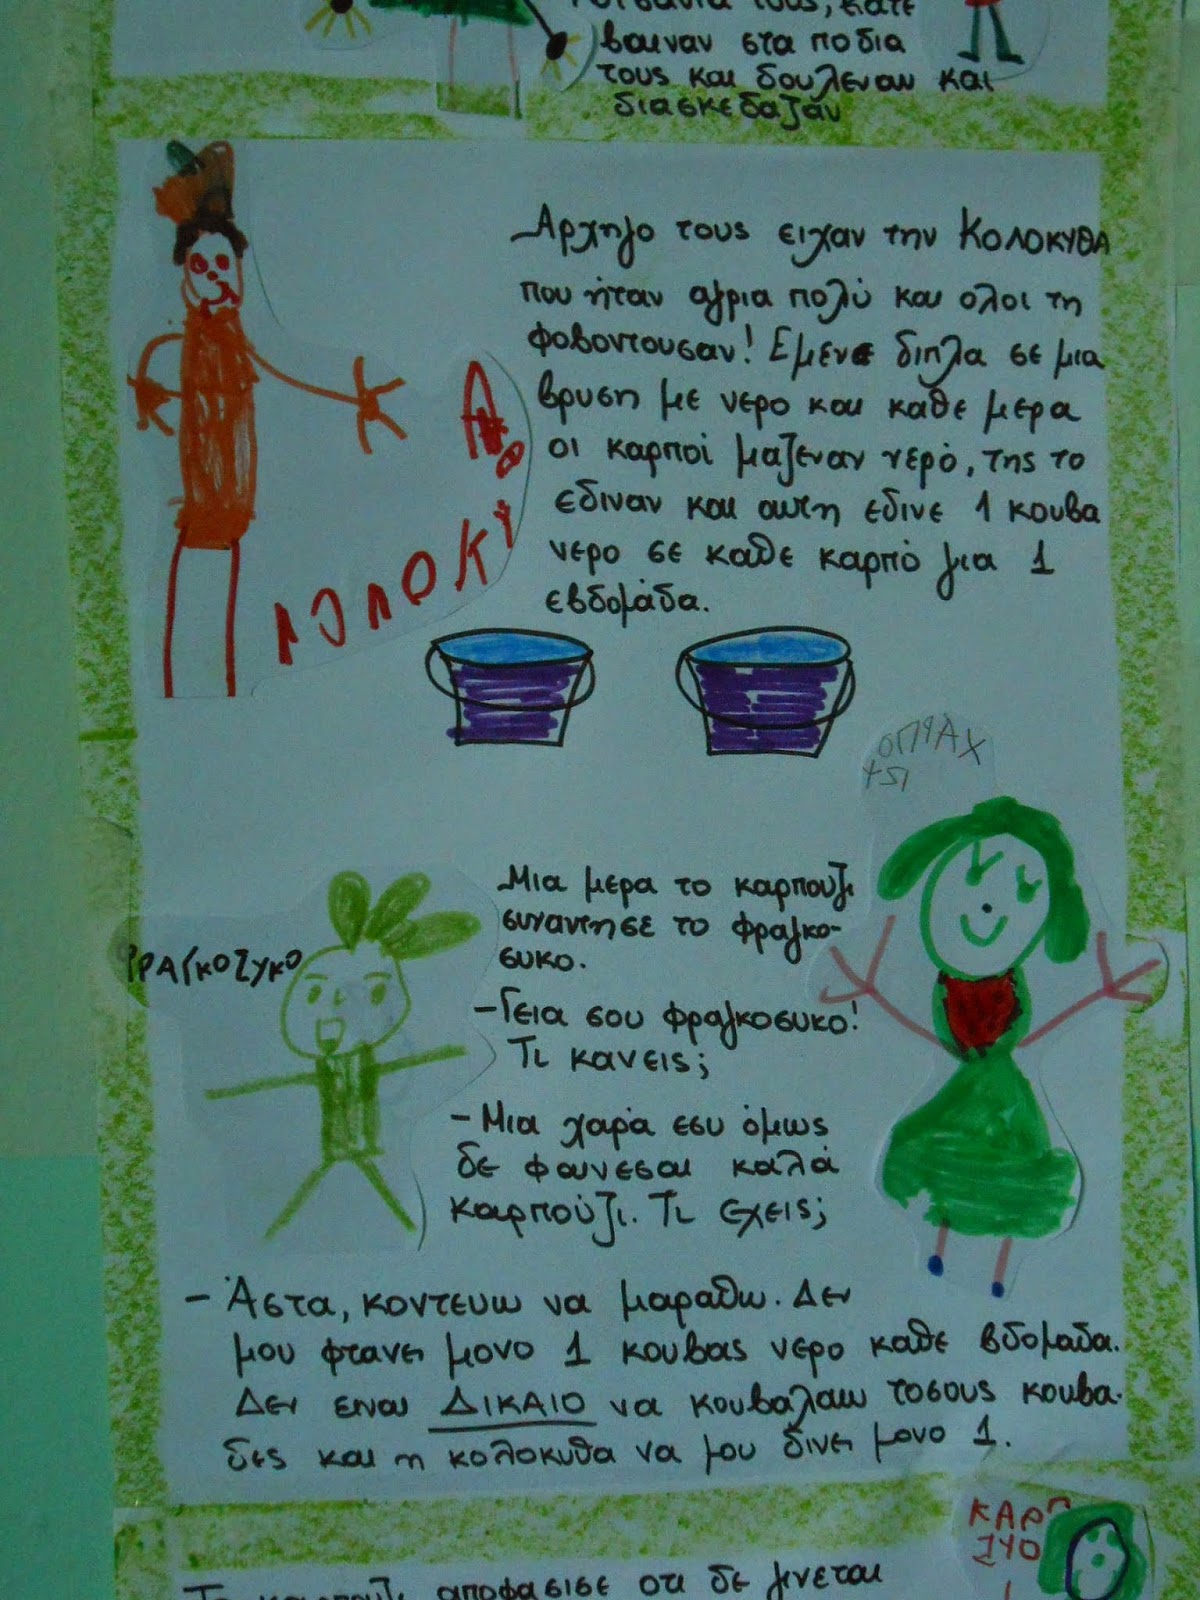 τους, κατέ
βαιναν στα ποδια
τους και δουλευαν και
διασκεδαζαν
Αρχηγο τους ειχαν την ΚΟΛΟΚΥΘΑ
που ήταν αγρια πολύ και ολοι τη
φοβοντουσαν! Εμενε διπλα σε μια
βρυση με νερο και καθε μερα
οι καρποί μαζευαν νερό, της το
εδιναν και αυτη εδινε 1 κουβα
νερο σε καθε καρπό για 1
εβδομάδα.
Μια μερα το καρπουζι
συναντησε το φραγκο-
συκο.
ΦΡΑΓΚΟΣΥΚΟ
-Γεια σου φραγκοσυκο!
Τι κανεις;
- Μια χαρά εσυ όμως
δε φαινεσαι καλά
καρπούζι. Τι εχεις;
- Άστα, κοντευω να μαραθω. Δεν
μου φτανει μονο 1 κουβας νερο καθε βδομαδα.
Δεν ειναι ΔΙΚΑΙΟ να κουβαλαω τοσους κουβα-
δες και η κολοκυθα να μου δινει μονο 1.
ΚΑΡΠ
Το καρπουζι αποφασισε οτι δε γινεται